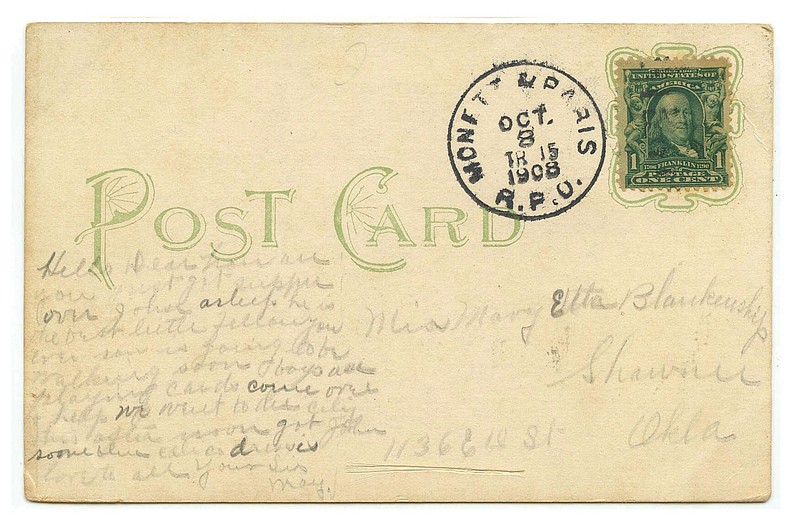 MONETT & PARIS
OCT.
8
TR 15
1908
R.P.O.
UNITED STATES OF
AMERICA
1 1
1706 FRANKLIN 1790
POSTAGE
ONE CENT
POST CARD
Hello Dear how are
you just got supper
over John asleep he is
the best little fellow you
ever saw is going to be
walking soon boys are
playing cards come over
& help we went to the city
this after noon got John
some blue calico dresses
love to all your Sis
May.
Miss Mary Etta Blankenship
Shawnee
1136 E 1st St Okla